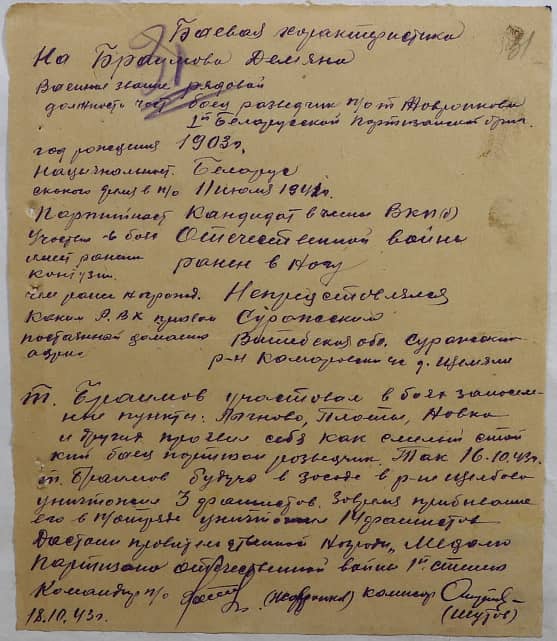 Боевая характеристика
31
На Браимова Демяна
Военное звание рядовой
должность боец разведчик п/о т Жавронкова
1й Белорусской Партизанской бриг.
год рождения 1903 г.
Национальност. Беларус
скокого время в п/о 11 июля 1942 г.
Партийност Кандидат в члены ВКП(б)
Участие в боях Отечественной войны
имеет ранения
контузии. ранен в Ногу
чем ранее награжд. Непредставлялся
Каким Р.В.К призван Суражским
постоянной домашни Витебская обл. Суражский
адрис р-н Камаровски с д.
т. Браимов участвовал в боях занаселен-
ные пункты: Лычково, Плоты, Новка
и другия проявил себя как смелый стой
кий боец партизан разведчик. Так 16.10.43 г.
т. Браимов будучи в засаде в р-н
уничтожил 3 фашистов. Завремя прибывание
его в п/отряде уничтожил 14 фашистов
Достоин правительственной Награды „Медалю
Партизана отечественной войны 1й степени
Командир п/о (Жавронков) комисар
18.10.43 г. (Шутов)